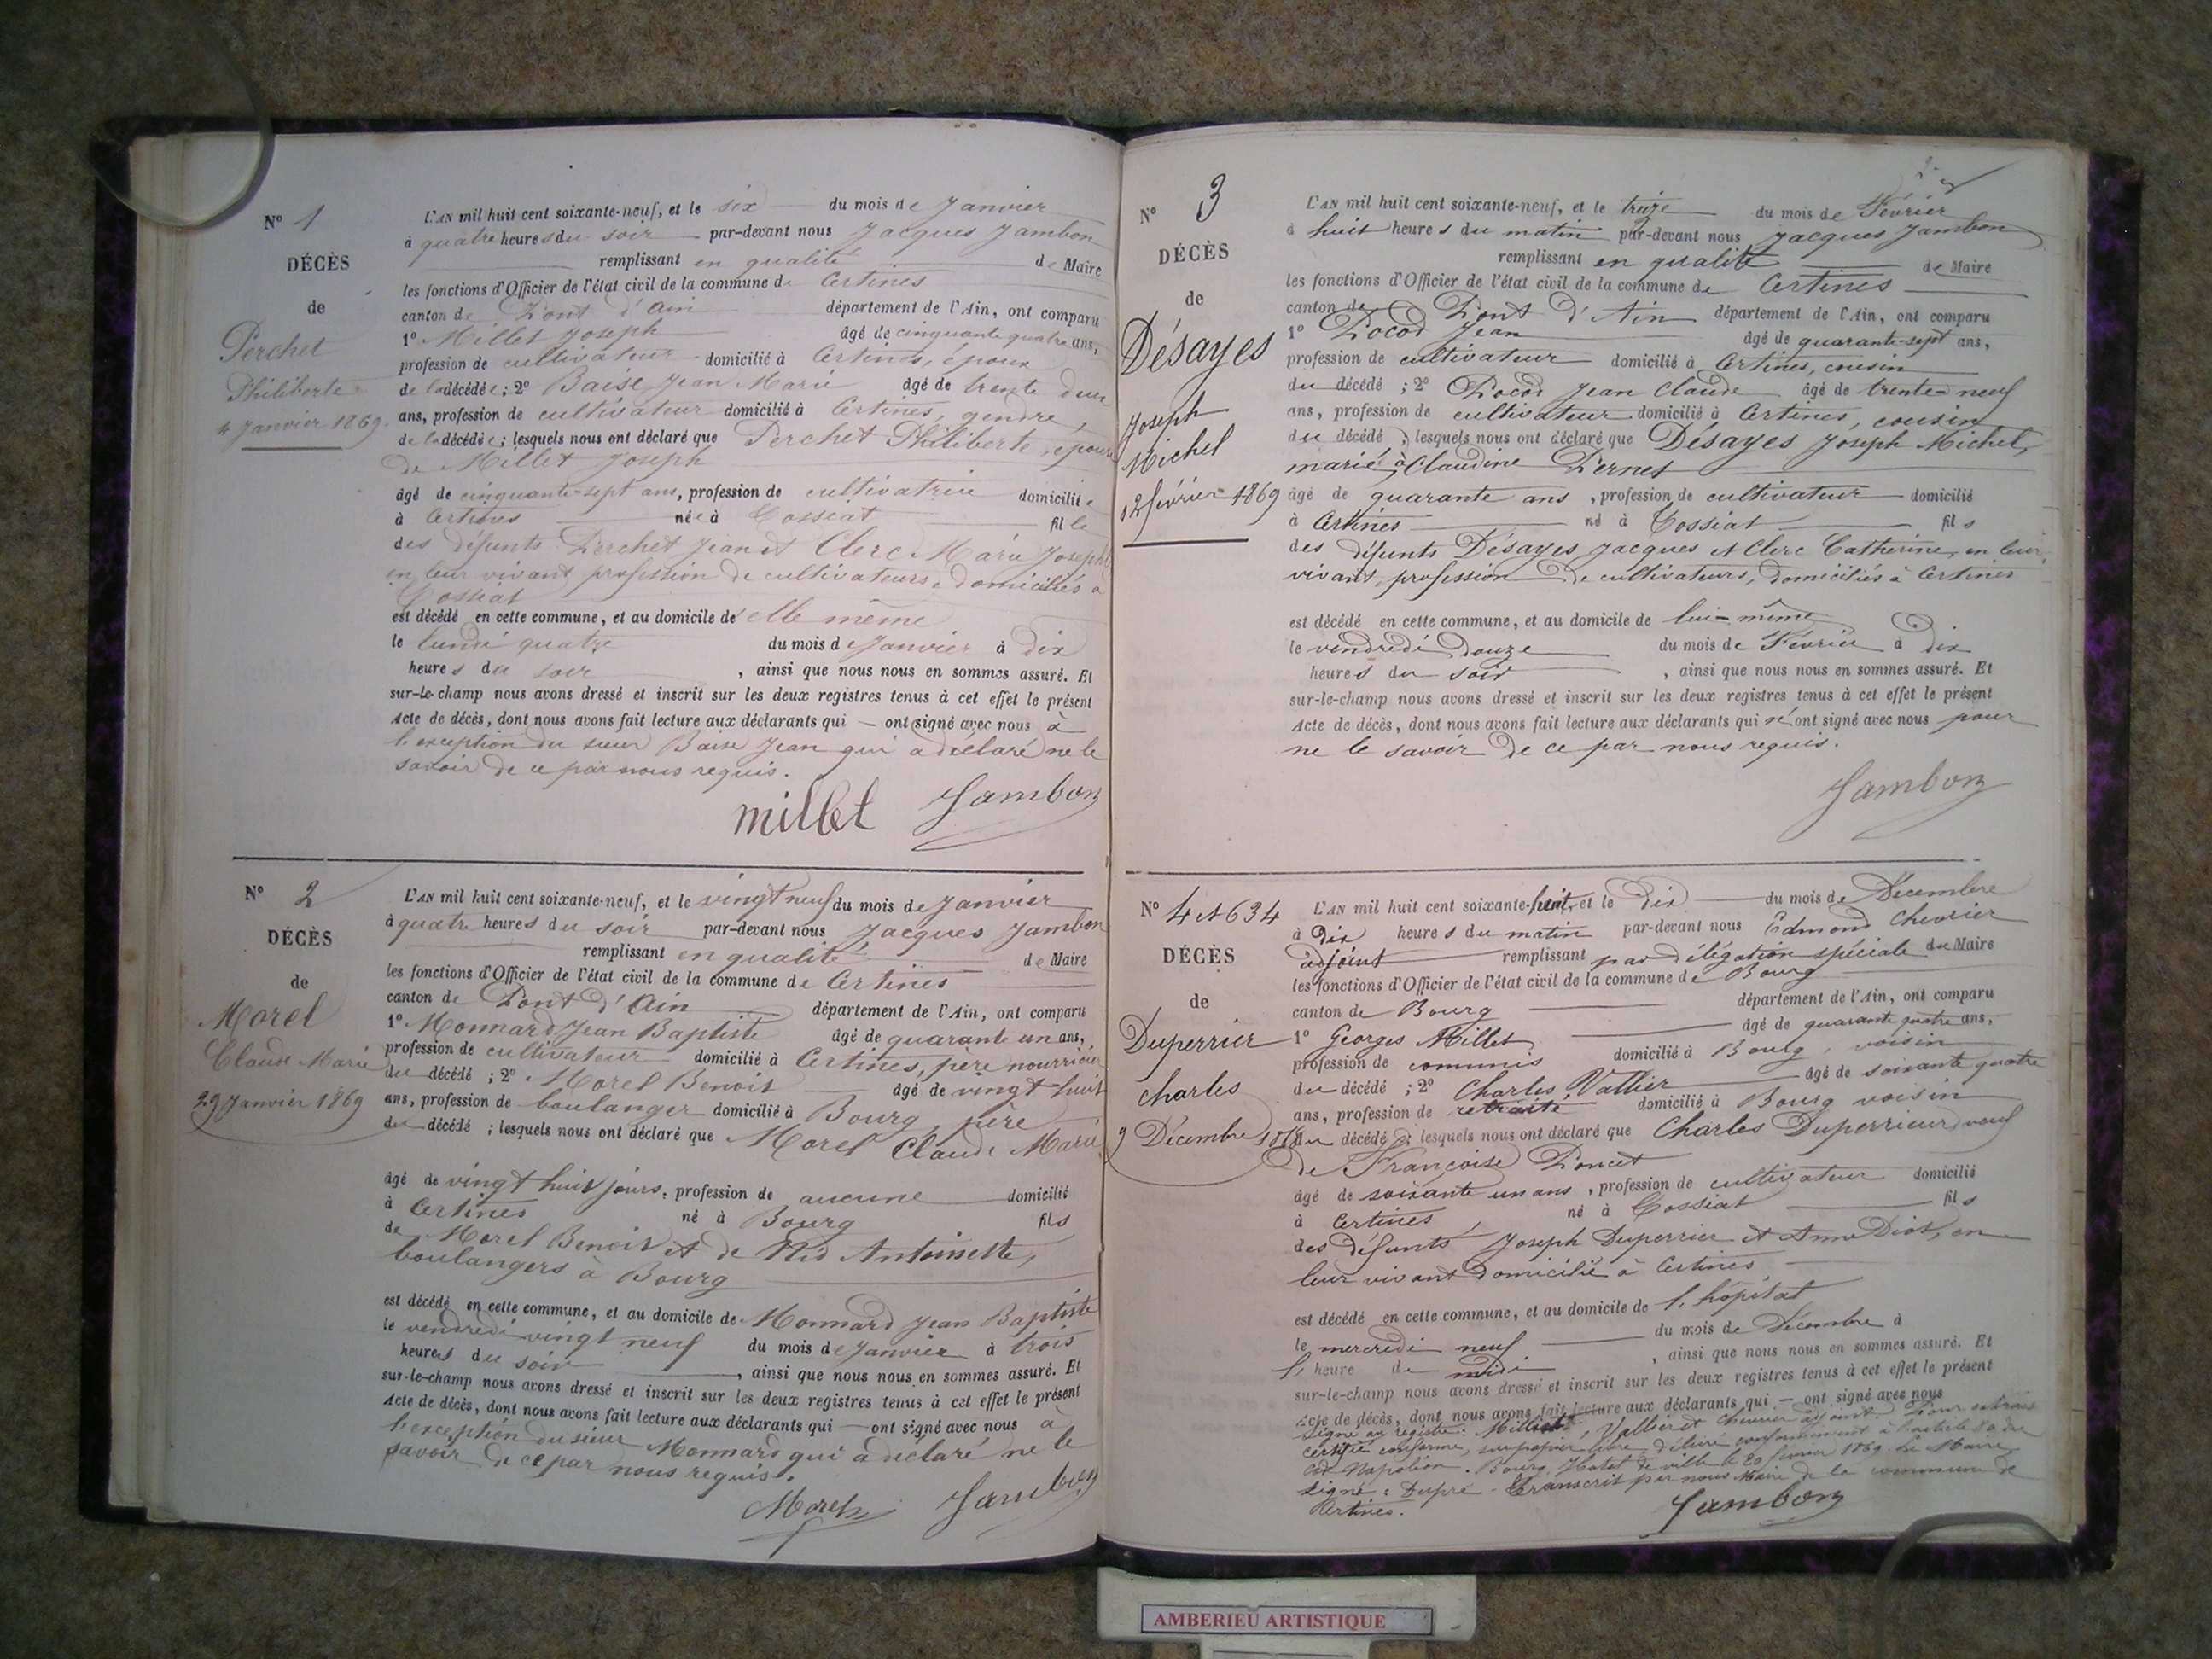 N° 1
DÉCÈS
de
Perchet
Philiberte
4 Janvier 1869
L'AN mil huit cent soixante-neuf, et le six du mois de Janvier
à quatre heures du soir par-devant nous Jacques Jambon
remplissant en qualité de Maire
les fonctions d'Officier de l'état civil de la commune de Certines
canton de Pont d'Ain département de l'Ain, ont comparu
1° Millet Joseph âgé de cinquante quatre ans,
profession de cultivateur domicilié à Certines, époux
de la décédée ; 2° Baise Jean Marie âgé de trente deux
ans, profession de cultivateur domicilié à Certines, gendre,
de la décédée ; lesquels nous ont déclaré que Perchet Philiberte, épouse
de Millet Joseph
âgé de cinquante-sept ans, profession de cultivatrice domiciliée
à Certines née à Tossiat fille
des défunts Perchet Jean et Clerc Marie Josephte
en leur vivant profession de cultivateurs domiciliés à
Tossiat
est décédé en cette commune, et au domicile de elle même
le lundi quatre du mois de Janvier à dix
heures du soir , ainsi que nous nous en sommes assuré. Et
sur-le-champ nous avons dressé et inscrit sur les deux registres tenus à cet effet le présent
Acte de décès, dont nous avons fait lecture aux déclarants qui — ont signé avec nous à
l'exception du sieur Baise Jean qui a déclaré ne le
savoir de ce par nous requis.
millet Jambon
N° 2
DÉCÈS
de
Morel
Claude Marie
29 Janvier 1869
L'AN mil huit cent soixante-neuf, et le vingt neuf du mois de Janvier
à quatre heures du soir par-devant nous Jacques Jambon
remplissant en qualité de Maire
les fonctions d'Officier de l'état civil de la commune de Certines
canton de Pont d'Ain département de l'Ain, ont comparu
1° Monnard Jean Baptiste âgé de quarante un ans,
profession de cultivateur domicilié à Certines, père nourricier
du décédé ; 2° Morel Benoit âgé de vingt-huit
ans, profession de boulanger domicilié à Bourg, père
du décédé ; lesquels nous ont déclaré que Morel Claude Marie
âgé de vingt huit jours, profession de aucune domicilié
à Certines né à Bourg fils
de Morel Benoit et de Nid Antoinette,
boulangers à Bourg
est décédé en cette commune, et au domicile de Monnard Jean Baptiste
le vendredi vingt neuf du mois de Janvier à trois
heures du soir , ainsi que nous nous en sommes assuré. Et
sur-le-champ nous avons dressé et inscrit sur les deux registres tenus à cet effet le présent
Acte de décès, dont nous avons fait lecture aux déclarants qui — ont signé avec nous à
l'exception du sieur Monnard qui a déclaré ne le
savoir de ce par nous requis.
Morel Jambon
N° 3
DÉCÈS
de
Désayes
Joseph
Michel
12 février 1869
L'AN mil huit cent soixante-neuf, et le treize du mois de Février
à huit heures du matin par-devant nous Jacques Jambon
remplissant en qualité de Maire
les fonctions d'Officier de l'état civil de la commune de Certines
canton de Pont d'Ain département de l'Ain, ont comparu
1° Pocod Jean âgé de quarante-sept ans,
profession de cultivateur domicilié à Certines, cousin
du décédé ; 2° Pocod Jean Claude âgé de trente-neuf
ans, profession de cultivateur domicilié à Certines, cousin
du décédé ; lesquels nous ont déclaré que Désayes Joseph Michel,
marié à Claudine Pernet
âgé de quarante ans , profession de cultivateur domicilié
à Certines né à Tossiat fils
des défunts Désayes Jacques et Clerc Catherine, en leur
vivant, profession de cultivateurs, domiciliés à Certines
est décédé en cette commune, et au domicile de lui-même
le vendredi douze du mois de Février à dix
heures du soir , ainsi que nous nous en sommes assuré. Et
sur-le-champ nous avons dressé et inscrit sur les deux registres tenus à cet effet le présent
Acte de décès, dont nous avons fait lecture aux déclarants qui n'ont signé avec nous pour
ne le savoir de ce par nous requis.
Jambon
N° 4 et 634
DÉCÈS
de
Duperrier
Charles
9 Décembre
L'AN mil huit cent soixante-huit, et le dix du mois de Décembre
à Dix heures du matin par-devant nous Edmond Chevrier
adjoint remplissant par délégation spéciale du Maire
les fonctions d'Officier de l'état civil de la commune de Bourg
canton de Bourg département de l'Ain, ont comparu
1° Georges Millet âgé de quarante quatre ans,
profession de commis domicilié à Bourg, voisin
du décédé ; 2° Charles Vallier âgé de soixante quatre
ans, profession de retraité domicilié à Bourg voisin
du décédé ; lesquels nous ont déclaré que Charles Duperrieur, veuf
de Françoise Poncet
âgé de soixante un ans , profession de cultivateur domicilié
à Certines né à Tossiat fils
des défunts Joseph Duperrier et Anne Diot, en
leur vivant domiciliés à Certines
est décédé en cette commune, et au domicile de l'hôpital
le mercredi neuf du mois de Décembre à
l'heure de midi , ainsi que nous nous en sommes assuré. Et
sur-le-champ nous avons dressé et inscrit sur les deux registres tenus à cet effet le présent
Acte de décès, dont nous avons fait lecture aux déclarants qui — ont signé avec nous
Signé au registre: Millet, Vallier et Chevrier adjoint. Pour extrait
certifié conforme, sur papier libre, délivré conformément à l'article 80 du
Code Napoléon. Bourg, Hotel de ville le 20 février 1869. Le Maire
signé: Dupré - Transcrit par nous Maire de la commune de
Certines.
Jambon
AMBERIEU ARTISTIQUE